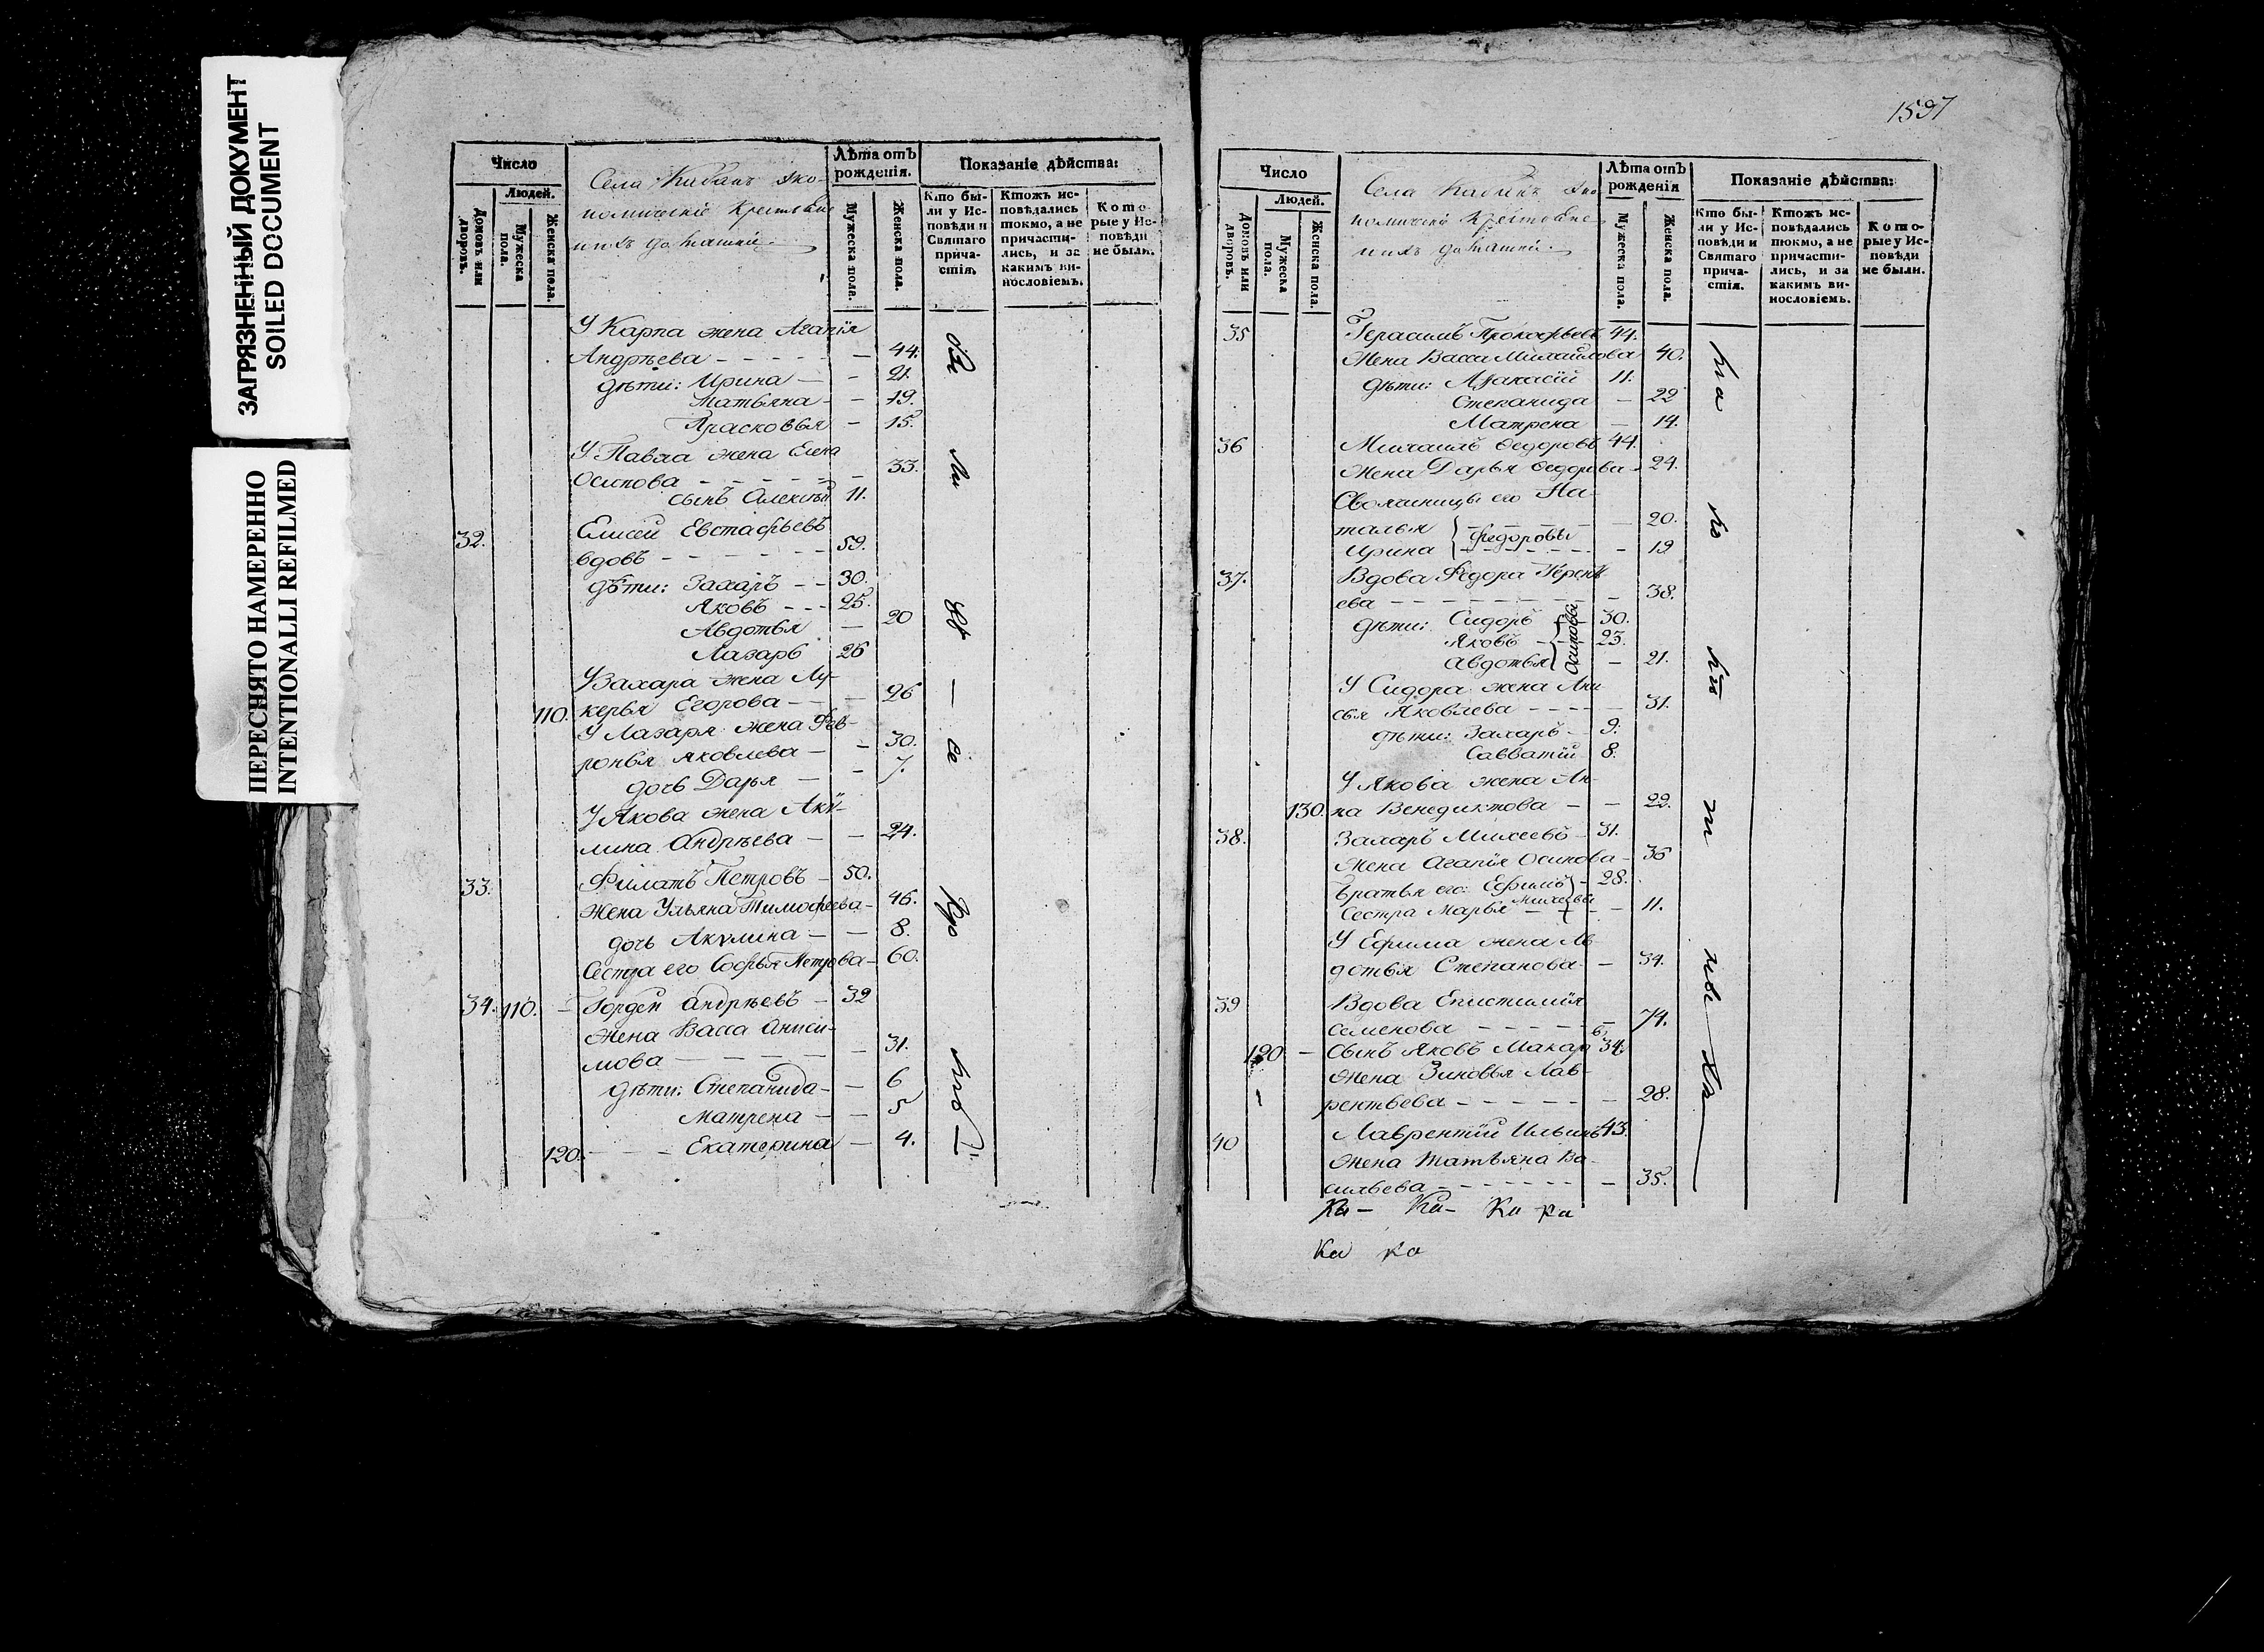 ЗАГРЯЗНЕННЫЙ ДОКУМЕНТ
SOILED DOCUMENT
ПЕРЕСНЯТО НАМЕРЕННО
INTENTIONALLI REFILMED
Число
Людей.
Домовъ или дворовъ.
Мужеска пола.
Женска пола.
Села Кабанъ Эко-
номическiе Крестьяне
ихъ домашнiи.
Лѣта отъ рожденiя.
Мужеска пола.
Женска пола.
Показанiе дѣйства:
Кто бы-
ли у Ис-
повѣди и
Святаго
прича-
стiя,
Ктожъ ис-
повѣдались
токмо, а не
причасти-
лись, и за
какимъ ви-
нословiемъ.
Кото-
рые у Ис-
повѣди
не были.
У Карпа жена Агапiя
Андрѣева - - - - - — 44.
дѣти: Ирина — - 21.
Татьяна - — 19.
Прасковья — 15.
У Павла жена Елена
Осипова - - - - - 33.
сынъ Алексѣй 11.
32. Елисей Евстафьевъ
вдовъ - - - - - - 59.
дѣти: Захаръ - - 30.
Яковъ - - - 25.
Авдотья — 20
Лазарь 26
У Захара жена Лу-
110. керья Егорова - — 26
У Лазаря жена Фев-
ронья Яковлева — - 30.
дочь Дарья — - 7.
У Якова жена Аку-
лина Андрѣева — — 24.
33. Филатъ Петровъ - 50.
Жена Ульяна Тимофеева - 46.
дочь Акулина — — 8.
Сестра его Софья Петрова - 60.
34. 110. - Гордѣй Андрѣевъ - 32
Жена Васса Аниси-
мова — — — — - 31.
дѣти: Степанида - — 6
Матрена — — 5
120. - - - Екатерина — 4.
1597
Число
Людей.
Домовъ или дворовъ.
Мужеска пола.
Женска пола.
Села Кабанъ Эко-
номическiе Крестьяне
ихъ домашнiи.
Лѣта отъ рожденiя
Мужеска пола.
Женска пола.
Показанiе дѣйства:
Кто бы-
ли у Ис-
повѣди и
Святаго
прича-
стiя.
Ктожъ ис-
повѣдались
токмо, а не
причасти-
лись, и за
какимъ ви-
нословiемъ.
Кото-
рые у Ис-
повѣди
не были.
35 Герасимъ Прокофьевъ 44.
Жена Васса Михайлова 40.
дѣти: Афанасiй 11.
Степанида — 22
Матрена — 14.
36 Михаилъ Федоровъ 44.
Жена Дарья Федорова - 24.
Своячницы его На-
талья - - - - - 20.
Федоровы
Ирина - - - - - 19
37. Вдова Федора Терентъ
ева - - - - - - - 38.
дѣти: Сидоръ 30.
Яковъ - - 23.
Осиповы
Авдотья — 21.
У Сидора жена Ани
сья Яковлева - - - - 31.
дѣти: Захаръ - - 9.
Савватiй 8.
У Якова жена Ан-
130. на Венедиктова - — 22.
38. Захаръ Михеевъ - 31.
Жена Агапiя Осипова - 36
Братья его: Ефимъ - 28.
Михеевы
Сестра Марья - - - 11.
У Ефима жена Ав
дотья Степанова - — 34.
39 Вдова Епистимiя
Семенова - - - - - 74.
120 - Сынъ Яковъ Макаровъ 34.
Жена Зиновья Лав-
рентьева - - - - - 28.
40 Лаврентiй Ильинъ 43.
Жена Татьяна Ва-
сильева - - - - - - - 35.
Ка - Ка - Ка ра
Ка ра